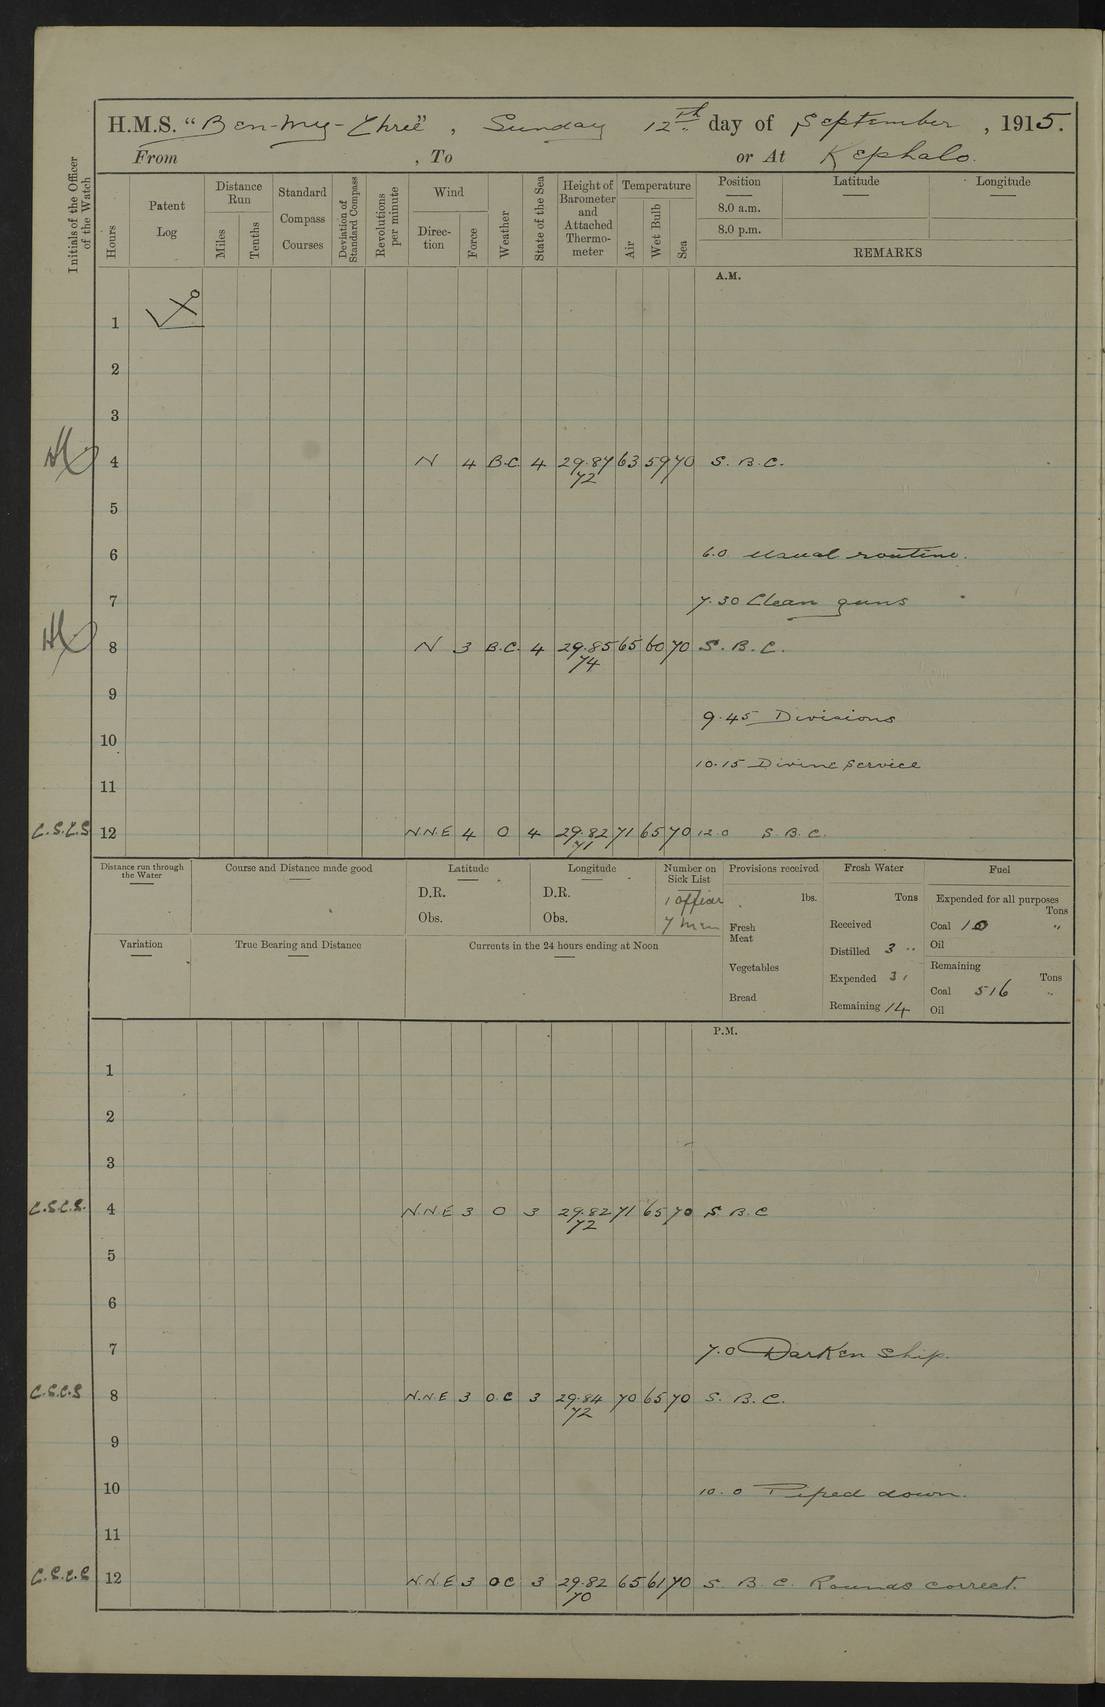 H.M.S. “Ben-my-Chree”, Sunday 12th day of September, 1915.
From , To or At Kephalo.
Initials of the Officer of the Watch
Hours
Patent Log
Distance Run
Miles
Tenths
Standard Compass Courses
Deviation of Standard Compass
Revolutions per minute
Wind
Direction
Force
Weather
State of the Sea
Height of Barometer and Attached Thermometer
Temperature
Air
Wet Bulb
Sea
Position
8.0 a.m.
8.0 p.m.
Latitude
Longitude
REMARKS
A.M.
1
2
3
4 N 4 B.C. 4 29.87 63 59 70 S. B. C.
72
5
6 6.0 Usual routine.
7 7.30 Clean guns
8 N 3 B.C. 4 29.85 65 60 70 S. B. C.
74
9
9.45 Divisions
10
10.15 Divine Service
11
C.S.C.S 12 N.N.E 4 O 4 29.82 71 65 70 12.0 S. B. C.
71
Distance run through the Water
Course and Distance made good
Latitude
D.R.
Obs.
Longitude
D.R.
Obs.
Number on Sick List
1 officer
7 men
Provisions received
lbs.
Fresh Meat
Vegetables
Bread
Fresh Water
Tons
Received
Distilled 3 "
Expended 31
Remaining 14
Fuel
Expended for all purposes
Tons
Coal 10 "
Oil
Remaining
Tons
Coal 516 "
Oil
Variation
True Bearing and Distance
Currents in the 24 hours ending at Noon
P.M.
1
2
3
C.S.C.S. 4 N.N.E 3 O 3 29.82 71 65 70 S B.C
72
5
6
7 7.0 Darken ship.
C.S.C.S 8 N.N.E 3 O.C 3 29.84 70 65 70 S. B. C.
72
9
10 10.0 Piped down.
11
C.S.C.S 12 N.N.E 3 OC 3 29.82 65 61 70 S. B. C. Rounds correct.
70